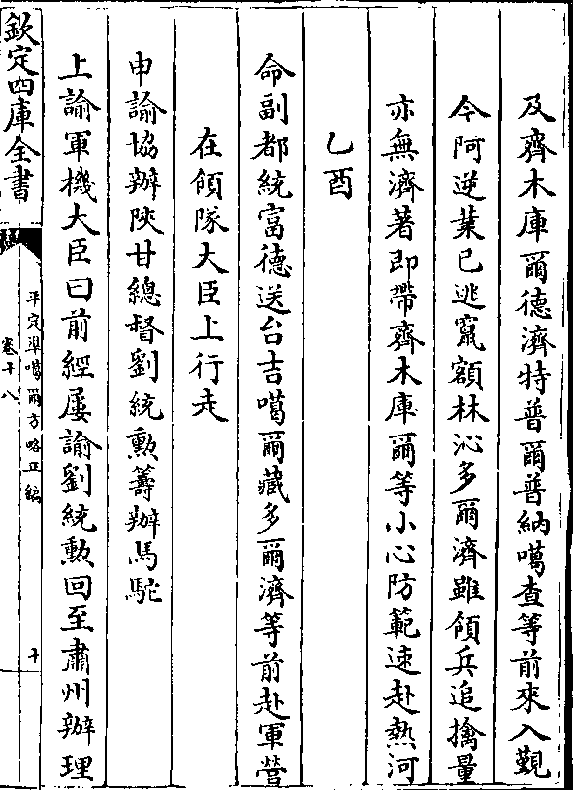 及齊木庫爾德濟特普爾普納噶查等前來入覲
今阿逆業已逃竄額林沁多爾濟雖領兵追擒量
亦無濟著即帶齊木庫爾等小心防範速赴熱河
乙酉
命副都統富德送台吉噶爾藏多爾濟等前赴軍營
在領隊大臣上行走
申諭協辦陝甘總督劉統勲籌辦馬駝
上諭軍機大臣曰前經屢諭劉統勲回至肅州辦理
欽定四庫全書
平定準噶爾方略正編
卷十八
十